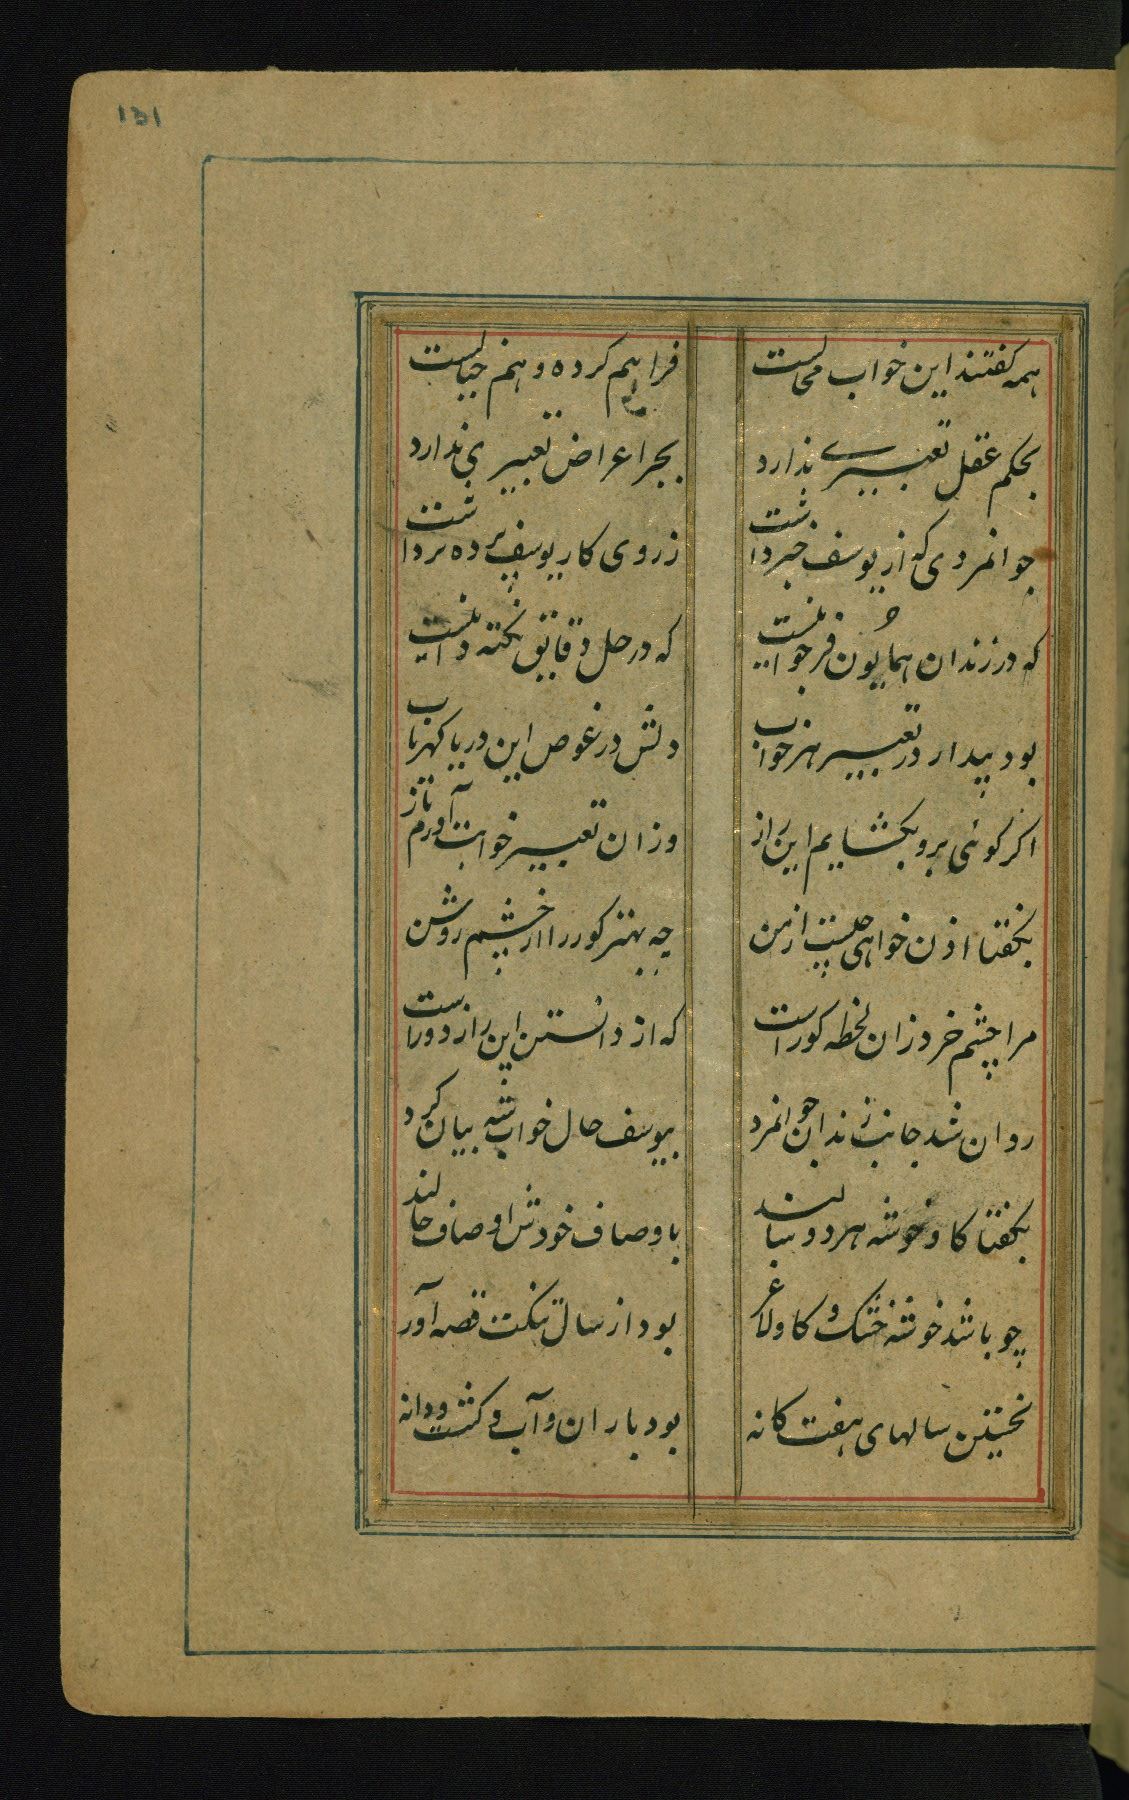 131
همه کفتند این خواب محالست فراهم کرده وهم خیالست
بحکم عقل تعبیری ندارد بجز اعراض تعبیری ندارد
جوانمردی که از یوسف خبر داشت ز روی کار یوسف پرده برداشت
که در زندان همایون فر جوانیست که در حل دقایق نکته دانیست
بود بیدار در تعبیر هر خواب دلش در غوص این دریا کهریاب
اکر کوئی برو بکشایم این راز وزان تعبیر خوابت آورم باز
بکفتا اذن خواهی چیست از من چه بهتر کور را از چشم روشن
مرا چشم خرد زان لحظه کور است که از دانستن این راز دور است
روان شد جانب زندان جوانمرد بیوسف حال خواب شه بیان کرد
بکفتا کاو و خوشه هر دو سالند باوصاف خودش اوصاف حالند
چو باشد خوشه خشک و کاو لاغر بود از سال تنکت قصه آور
نخستین سالهای هفت کانه بود باران و آب و کشت و دانه